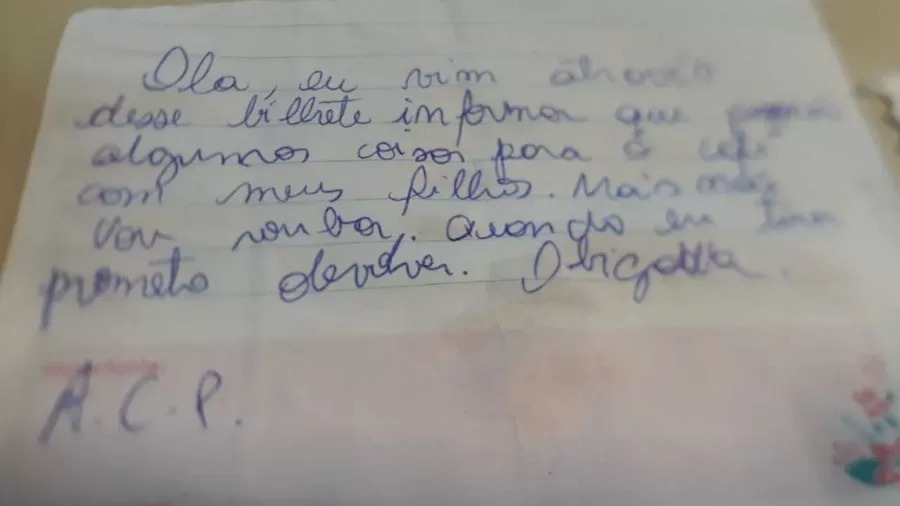 Ola, eu vim através
desse bilhete informar que
algumas coisas para o café
com meus filhos. Mais não
vou roubar. Quando eu tiver
prometo devolver. Obigada.
A.C.P.